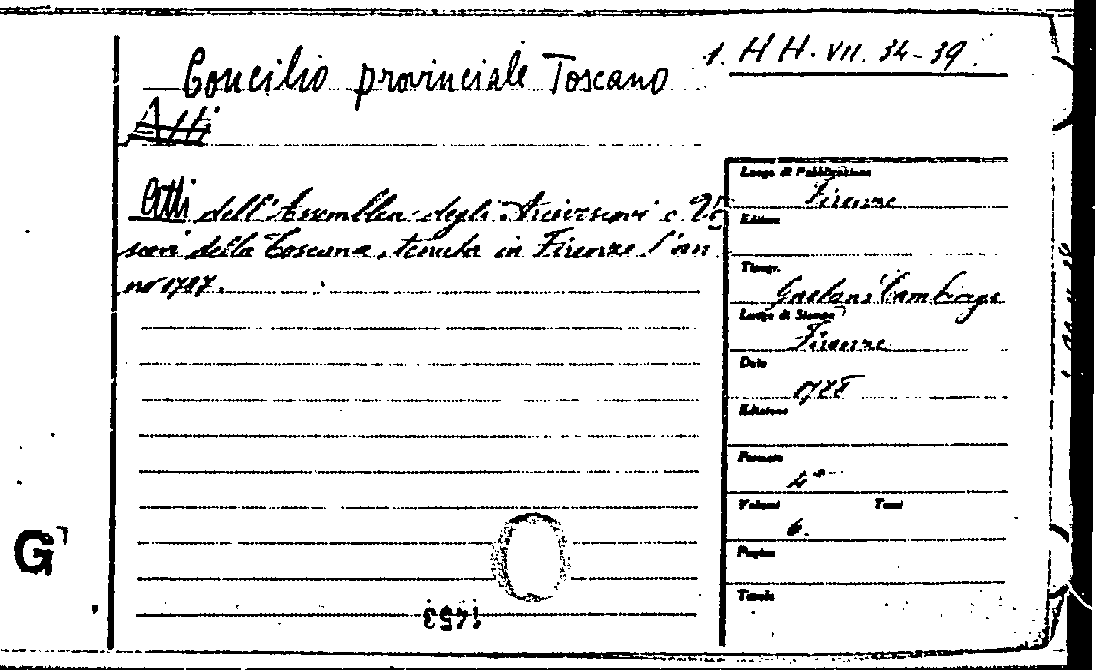 Concilio provinciale Toscano
1. H H. VII. 34-39.
Atti
Atti dell'Assemblea degli Arcivescovi e Ve
scovi della Toscana, tenuta in Firenze l'an
no 1787.
Luogo di Pubblicazione
Firenze
Editore
Tipogr.
Gaetano Cambiagi
Luogo di Stampa
Firenze
Data
1788
Edizione
Formato
4°
Volumi Tomi
6.
Pagine
Tavole
G
1453